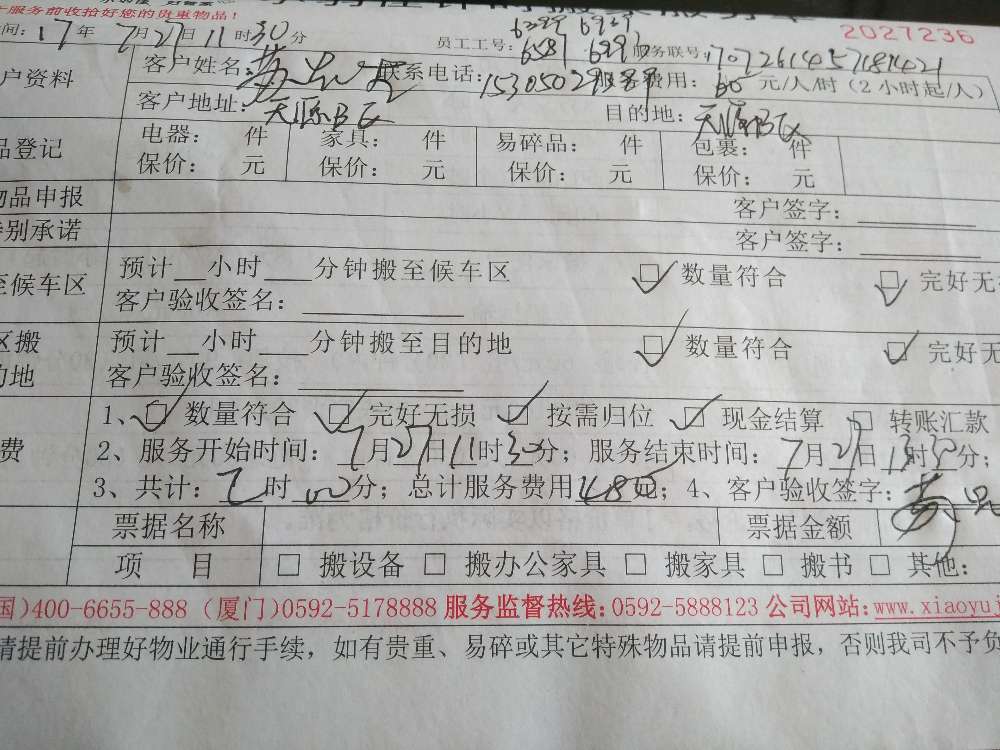 服务前收拾好您的贵重物品！
2027236
间：17年7月27日11时30分 员工工号： 6581 服务联号：
户资料 客户姓名： 联系电话： 服务费用：60元/人/时（2小时起/人）
客户地址：天源B区 目的地：天源B区
品登记 电器： 件 家具： 件 易碎品： 件 包裹： 件
保价： 元 保价： 元 保价： 元 保价： 元
物品申报 客户签字：
特别承诺 客户签字：
至候车区 预计__小时__分钟搬至候车区 ☑数量符合 ☑完好无
客户验收签名：
区搬 预计__小时__分钟搬至目的地 ☑数量符合 ☑完好无
的地 客户验收签名：
1、☑数量符合 ☑完好无损 ☑按需归位 ☑现金结算 □转账汇款
费 2、服务开始时间：7月27日11时30分；服务结束时间：7月27日13时30分；
3、共计：2时00分；总计服务费用480元；4、客户验收签字：
票据名称 票据金额
项 目 □搬设备 □搬办公家具 □搬家具 □搬书 □其他：
国)400-6655-888 (厦门)0592-5178888 服务监督热线：0592-5888123 公司网站：www.xiaoyu
请提前办理好物业通行手续，如有贵重、易碎或其它特殊物品请提前申报，否则我司不予负